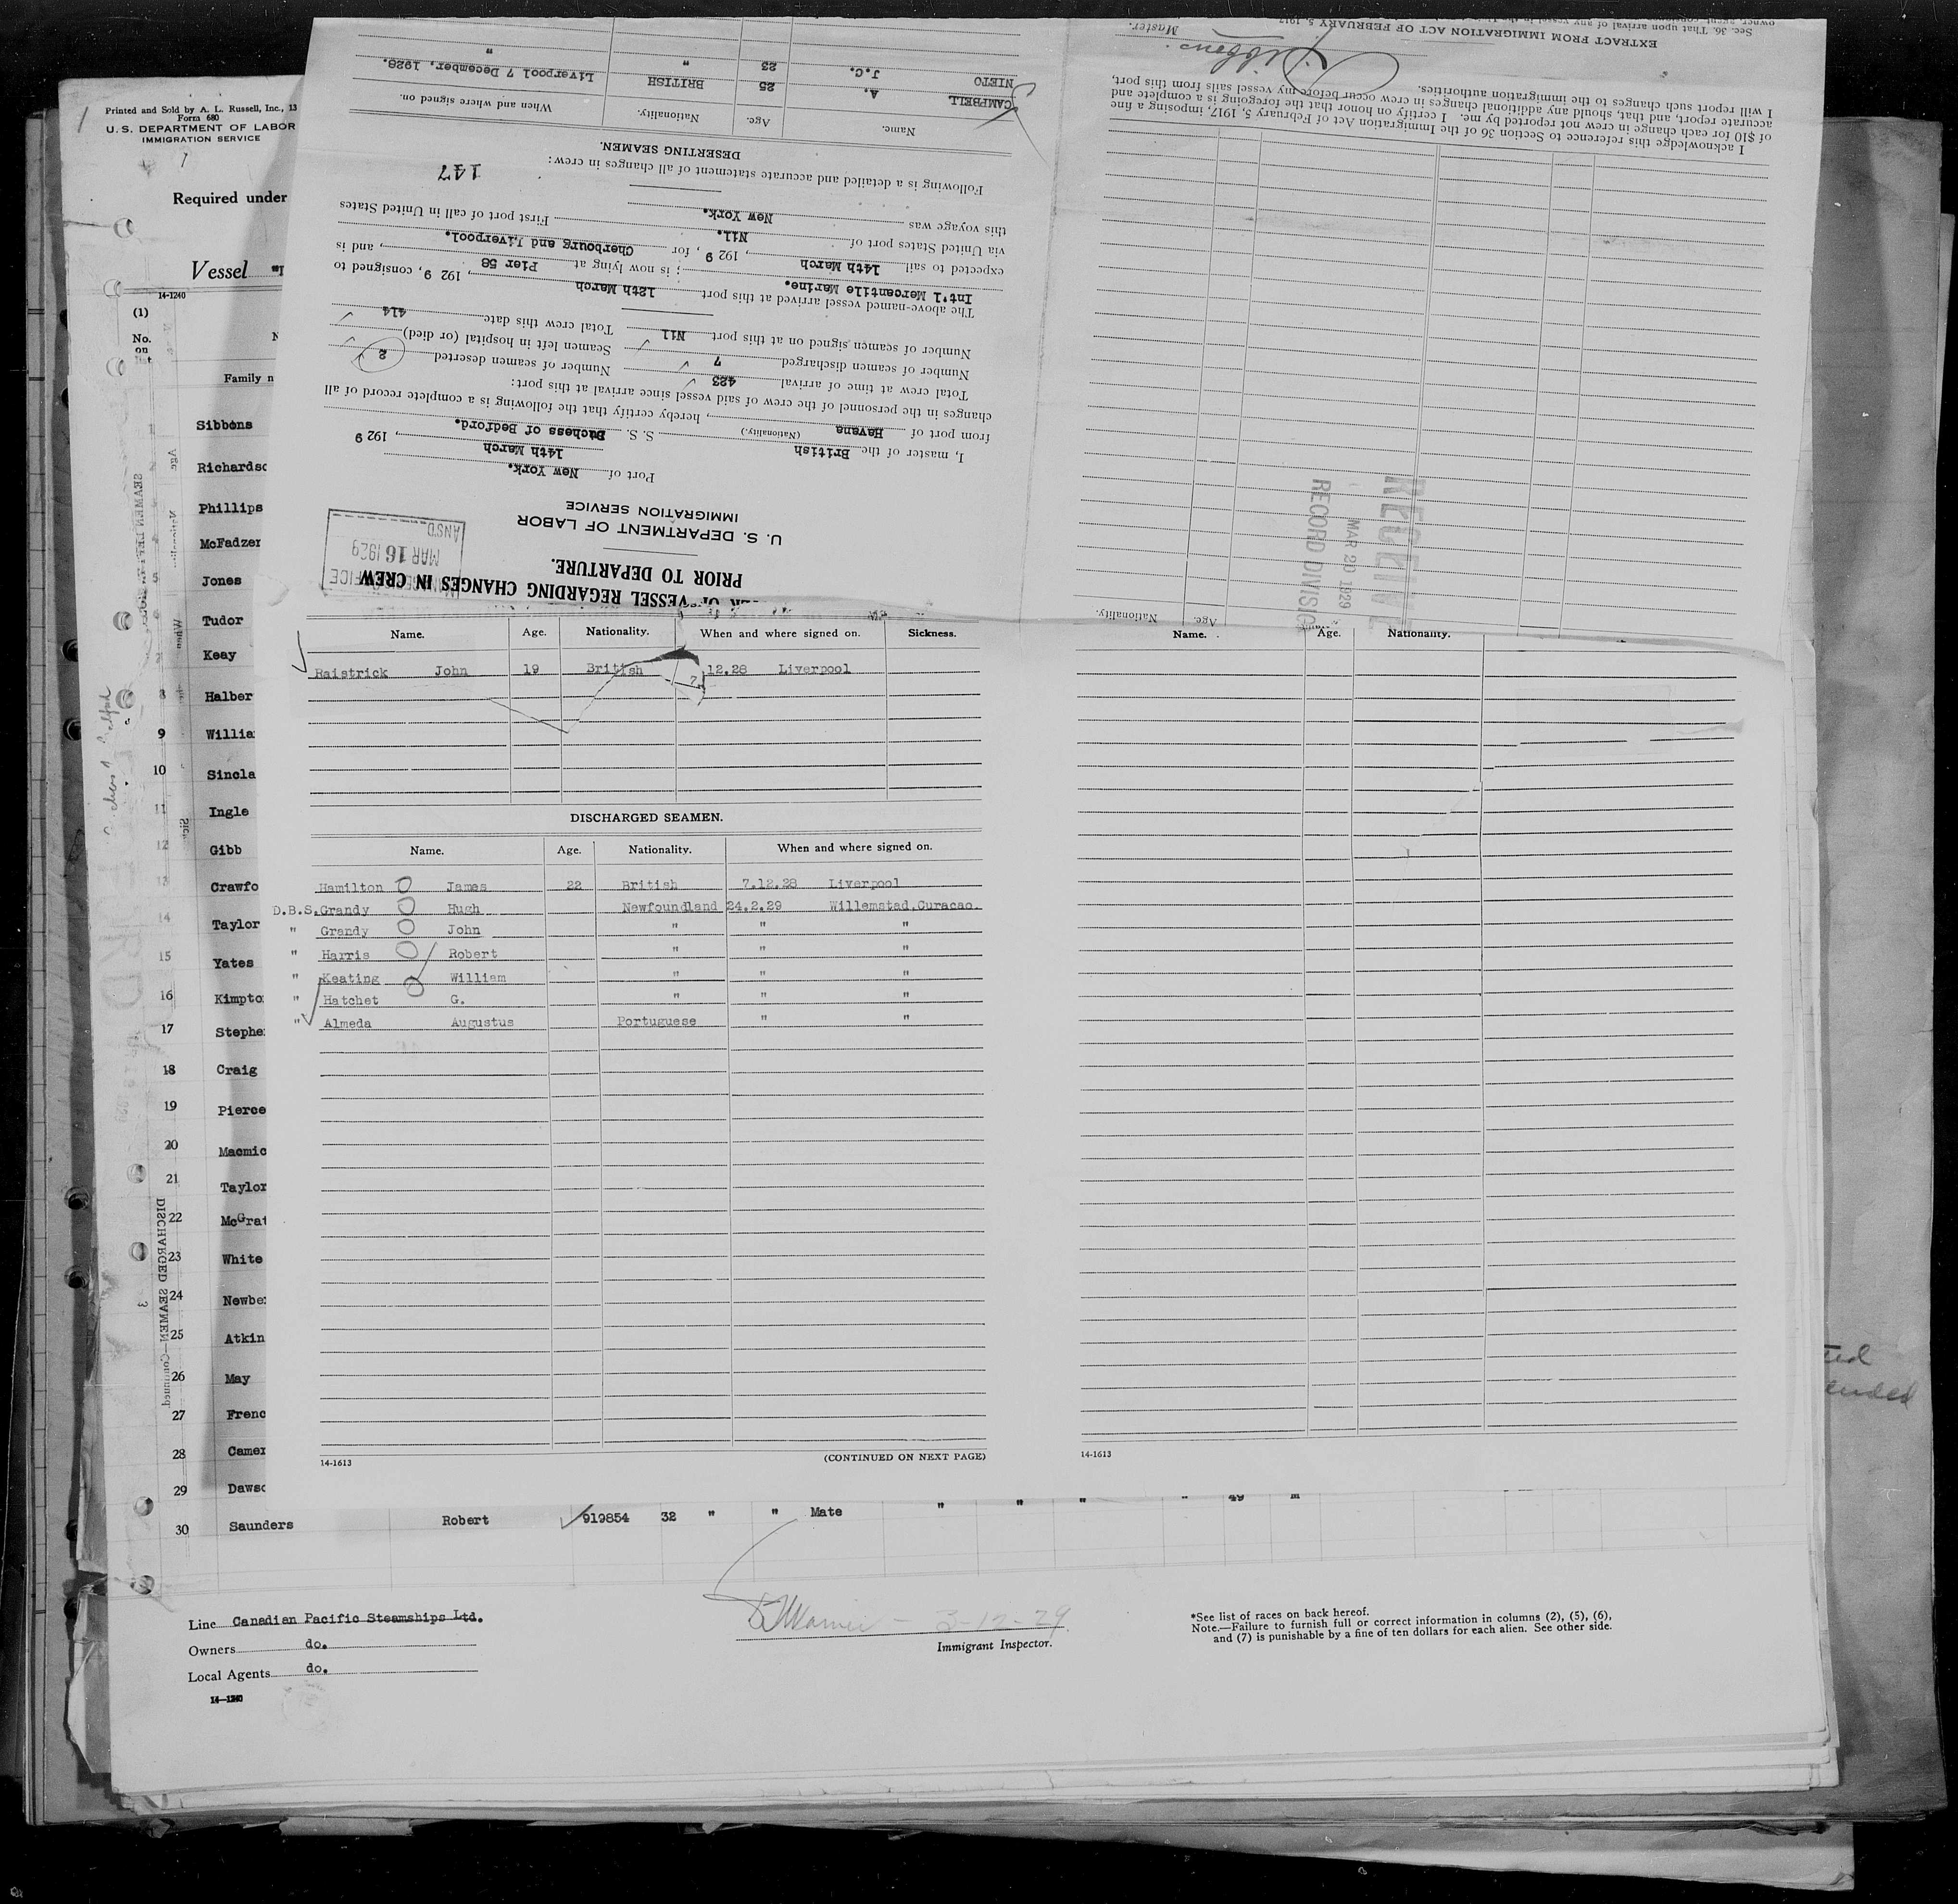 Printed and Sold by A. L. Russell, Inc., 13
Form 680
U. S. DEPARTMENT OF LABOR
IMMIGRATION SERVICE
Required under
Vessel
14-1240
(1)
No.
on
Family n
Sibbons
Richardso
Phillips
McFadzer
Jones
Tudor
Keay
8 Halber
9 Willia
10 Sincla
11 Ingle
12 Gibb
13 Crawfo
14 Taylor
15 Yates
16 Kimpto
17 Stephe
18 Craig
19 Pierce
20 Macmic
21 Taylor
22 McGrat
23 White
24 Newbe
25 Atkin
26 May
27 Frenc
28 Camer
29 Dawso
30 Saunders Robert 919854 32 " " Mate " " " " 49 M
DISCHARGED SEAMEN—Continued.
3
Line Canadian Pacific Steamships Ltd.
Owners do.
Local Agents do.
14—1240
3-12-29
Immigrant Inspector.
*See list of races on back hereof.
Note.—Failure to furnish full or correct information in columns (2), (5), (6),
and (7) is punishable by a fine of ten dollars for each alien. See other side.
OF VESSEL REGARDING CHANGES IN CREW
PRIOR TO DEPARTURE.
MAR 16 1929
ANS'D
U. S. DEPARTMENT OF LABOR
IMMIGRATION SERVICE
Port of New York.
14th March, 192 9
I, master of the British S. S. Duchess of Bedford.
(Nationality.)
from port of Havana, hereby certify that the following is a complete record of all
changes in the personnel of the crew of said vessel since arrival at this port:
Total crew at time of arrival 423 Number of seamen deserted 2
Number of seamen discharged 7 Seamen left in hospital (or died)
Number of seamen signed on at this port Nil Total crew this date 414
The above-named vessel arrived at this port 12th March, 192 9, consigned to
Int'l Mercantile Marine.; is now lying at Pier 58, and is
expected to sail 14th March, 192 9, for Cherbourg and Liverpool.
via United States port of Nil. First port of call in United States
this voyage was New York.
Following is a detailed and accurate statement of all changes in crew:
147
DESERTING SEAMEN.
Name. Age. Nationality. When and where signed on.
CAMPBELL A. 25 BRITISH Liverpool 7 December, 1928.
NIETO J.C. 23 " "
Name. Age. Nationality. When and where signed on. Sickness.
Raistrick John 19 British 12.28 Liverpool
DISCHARGED SEAMEN.
Name. Age. Nationality. When and where signed on.
Hamilton James 22 British 7.12.28 Liverpool
D.B.S. Grandy Hugh Newfoundland 24.2.29 Willemstad.Curacao.
" Grandy John " " "
" Harris Robert " " "
" Keating William " " "
" Hatchet G. " " "
" Almeda Augustus Portuguese " "
14-1613
(CONTINUED ON NEXT PAGE)
Nationality. Age.
RECEIVED
MAR 20 1929
RECORD DIVISION
I acknowledge this reference to Section 36 of the Immigration Act of February 5, 1917, imposing a fine
of $10 for each change in crew not reported by me. I certify on honor that the foregoing is a complete and
accurate report, and that, should any additional changes in crew occur before my vessel sails from this port,
I will report such changes to the immigration authorities.
Master.
EXTRACT FROM IMMIGRATION ACT OF FEBRUARY 5, 1917
Sec. 36. That upon arrival of any vessel in the
Name. Age. Nationality.
14-1613